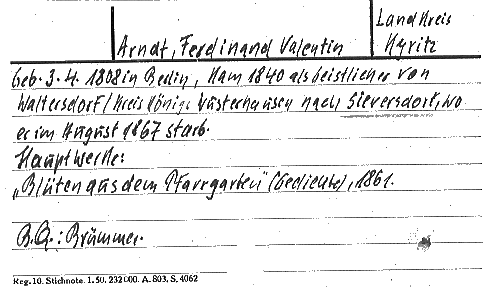 Landkreis
Arndt, Ferdinand Valentin Kyritz
Geb. 3. 4. 1808 in Berlin, kam 1840 als Geistlicher von
Waltersdorf/Kreis Königs Wusterhausen nach Sieversdorf, wo
er im August 1867 starb.
Hauptwerke:
„Blüten aus dem Pfarrgarten" (Gedichte), 1861.
B.Q.: Brümmer.
Reg. 10. Stichnote. 1. 50. 232 000. A. 803. S. 4062